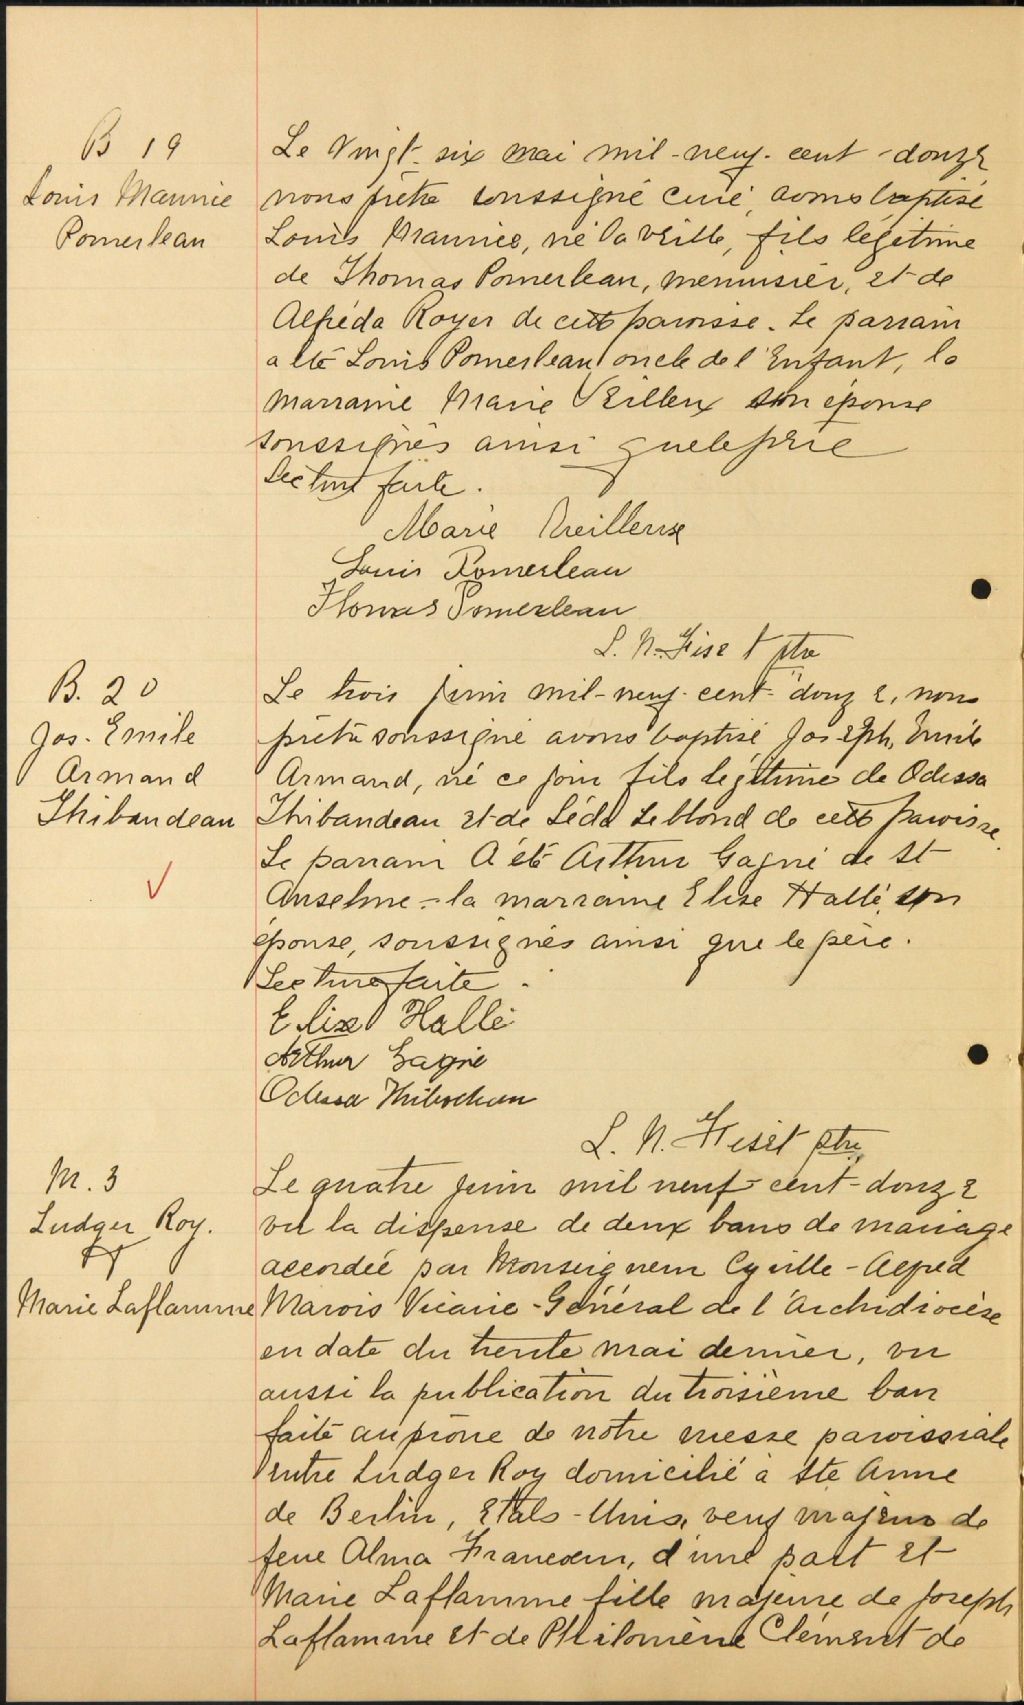 B 19
Louis Maurice
Pomerleau
Le vingt-six mai mil-neuf-cent-douze
nous prêtre soussigné curé, avons baptisé
Louis Maurice, né la veille, fils légitime
de Thomas Pomerleau, menuisier, et de
Alfréda Royer de cette paroisse. Le parrain
a été Louis Pomerleau oncle de l'Enfant, la
marraine Marie Veilleux son épouse
soussignés ainsi que le père
Lecture faite.
Marie Veilleux
Louis Pomerleau
Thomas Pomerleau
L. N. Fiset ptre
B. 20
Jos. Emile
Armand
Thibaudeau
Le trois juin mil-neuf-cent-douze, nous
prêtre soussigné avons baptisé Joseph, Emile
Armand, né ce jour fils légitime de Odessa
Thibaudeau et de Léda Leblond de cette paroisse.
Le parrain a été Arthur Gagné de St
Anselme - la marraine Elise Hallé son
épouse, soussignés ainsi que le père.
Lecture faite.
Elise Hallé
Arthur Gagné
Odessa Thibodeau
L. N. Fiset ptre
M. 3
Ludger Roy.
et
Marie Laflamme
Le quatre juin mil neuf-cent-douze
vu la dispense de deux bans de mariage
accordée par Monseigneur Cyrille-Alfred
Marois Vicaire-Général de l'Archidiocèse
en date du trente mai dernier, vu
aussi la publication du troisième ban
faite au prône de notre messe paroissiale
entre Ludger Roy domicilié à Ste Anne
de Berlin, Etats-Unis, veuf majeur de
feue Alma Francoeur, d'une part et
Marie Laflamme fille majeure de Joseph
Laflamme et de Philomène Clément de